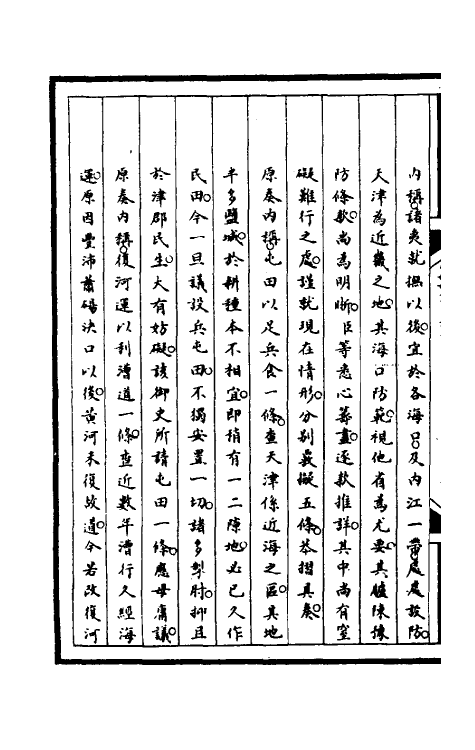 內稱諸夷就撫以後宜於各海口及內江一帶處處設防
天津為近畿之地其海口防範視他省為尤要其臚陳條
防條款尚為明晰臣等悉心籌畫逐款推詳其中尚有窒
礙難行之處謹就現在情形分別嚴擬五條恭摺具奏
原奏內稱屯田以足兵食一條查天津係近海之區其地
半多鹽堿於耕種本不相宜即稍有一二隙地必已久作
民田今一旦議設兵屯田不獨安置一切諸多掣肘抑且
於津郡民生大有妨礙該御史所請屯田一條應毋庸議
原奏內稱復河運以利漕道一條查近數年漕行久經海
運原因豐沛蕭碭決口以後黃河未復故道今若改復河